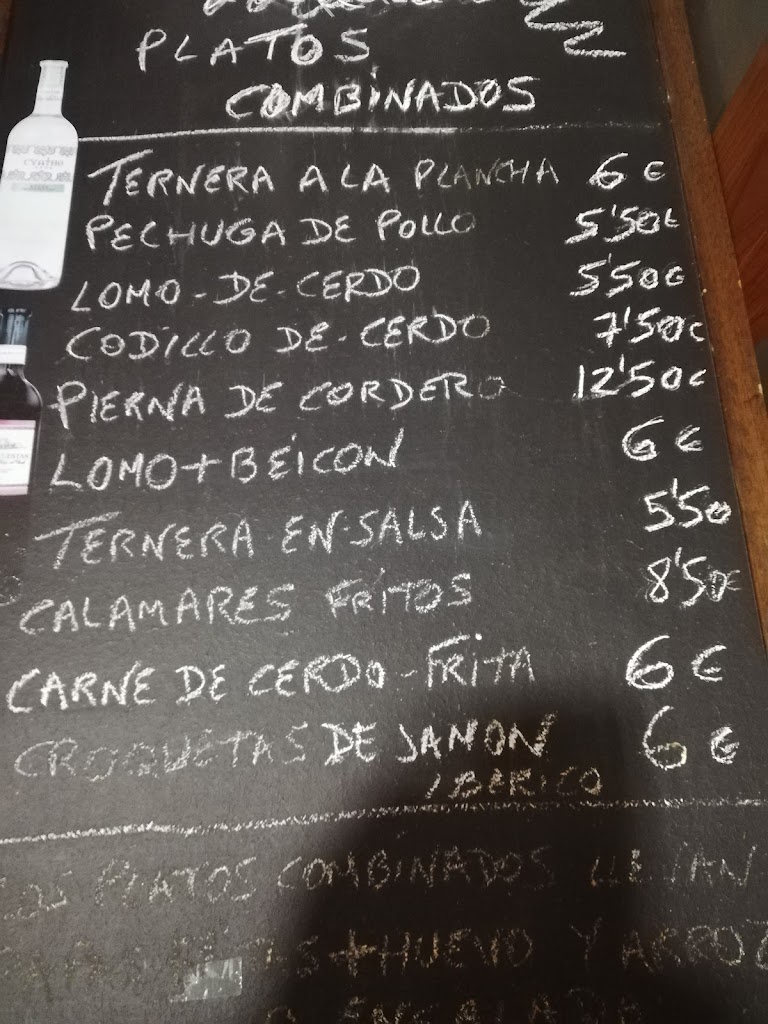 PLATOS
COMBINADOS
TERNERA A LA PLANCHA 6 €
PECHUGA DE POLLO 5'50€
LOMO-DE-CERDO 5'50€
CODILLO DE-CERDO 7'50€
PIERNA DE CORDERO 12'50€
LOMO+BEICON 6 €
TERNERA-EN-SALSA 5'50
CALAMARES FRITOS 8'50€
CARNE DE CERDO-FRITA 6 €
CROQUETAS DE JAMON 6 €
IBERICO
LOS PLATOS COMBINADOS LLEVAN
+HUEVO Y ARROZ
O ENSALADA